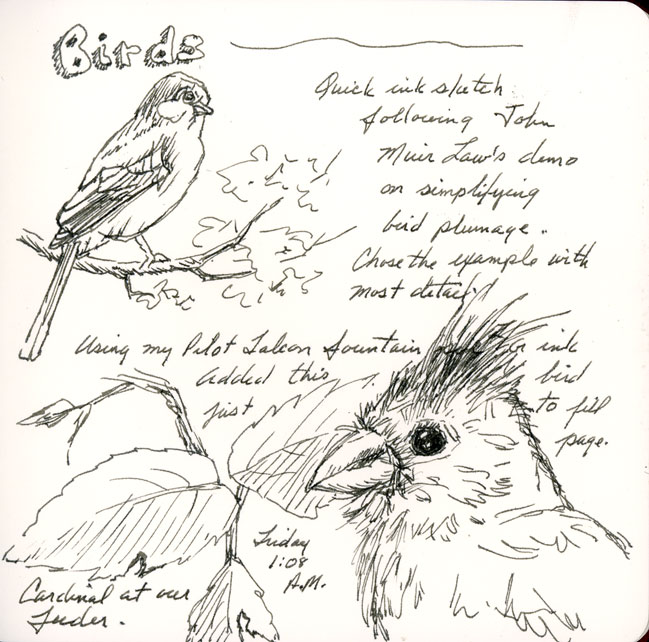 Birds
Quick ink sketch
following John
Muir Law's demo
on simplifying
bird plumage.
Chose the example with
most detail!
Using my Pilot Falcon fountain ink
added this bird
just to fill
page.
Friday
1:08
A.M.
Cardinal at our
feeder.